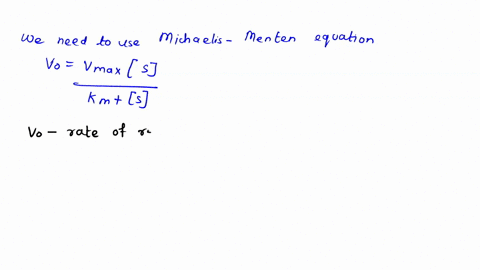 We need to use Michaelis-Menten equation
Vo = Vmax[S]
Km + [S]
Vo - rate of